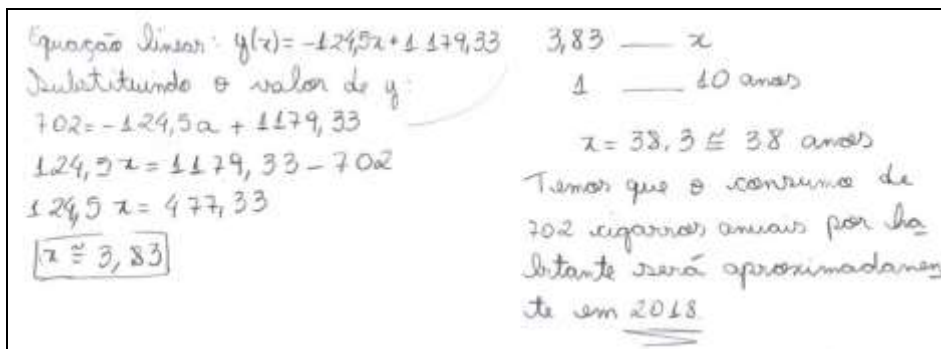 Equação linear: y(x) = -124,5x + 1 179,33
Substituindo o valor de y:
702 = -124,5x + 1179,33
124,5 x = 1179,33 - 702
124,5 x = 477,33
x ≅ 3,83
3,83 — x
1 — 10 anos
x = 38,3 ≅ 38 anos
Temos que o consumo de
702 cigarros anuais por ha
bitante será aproximadamen
te em 2018.